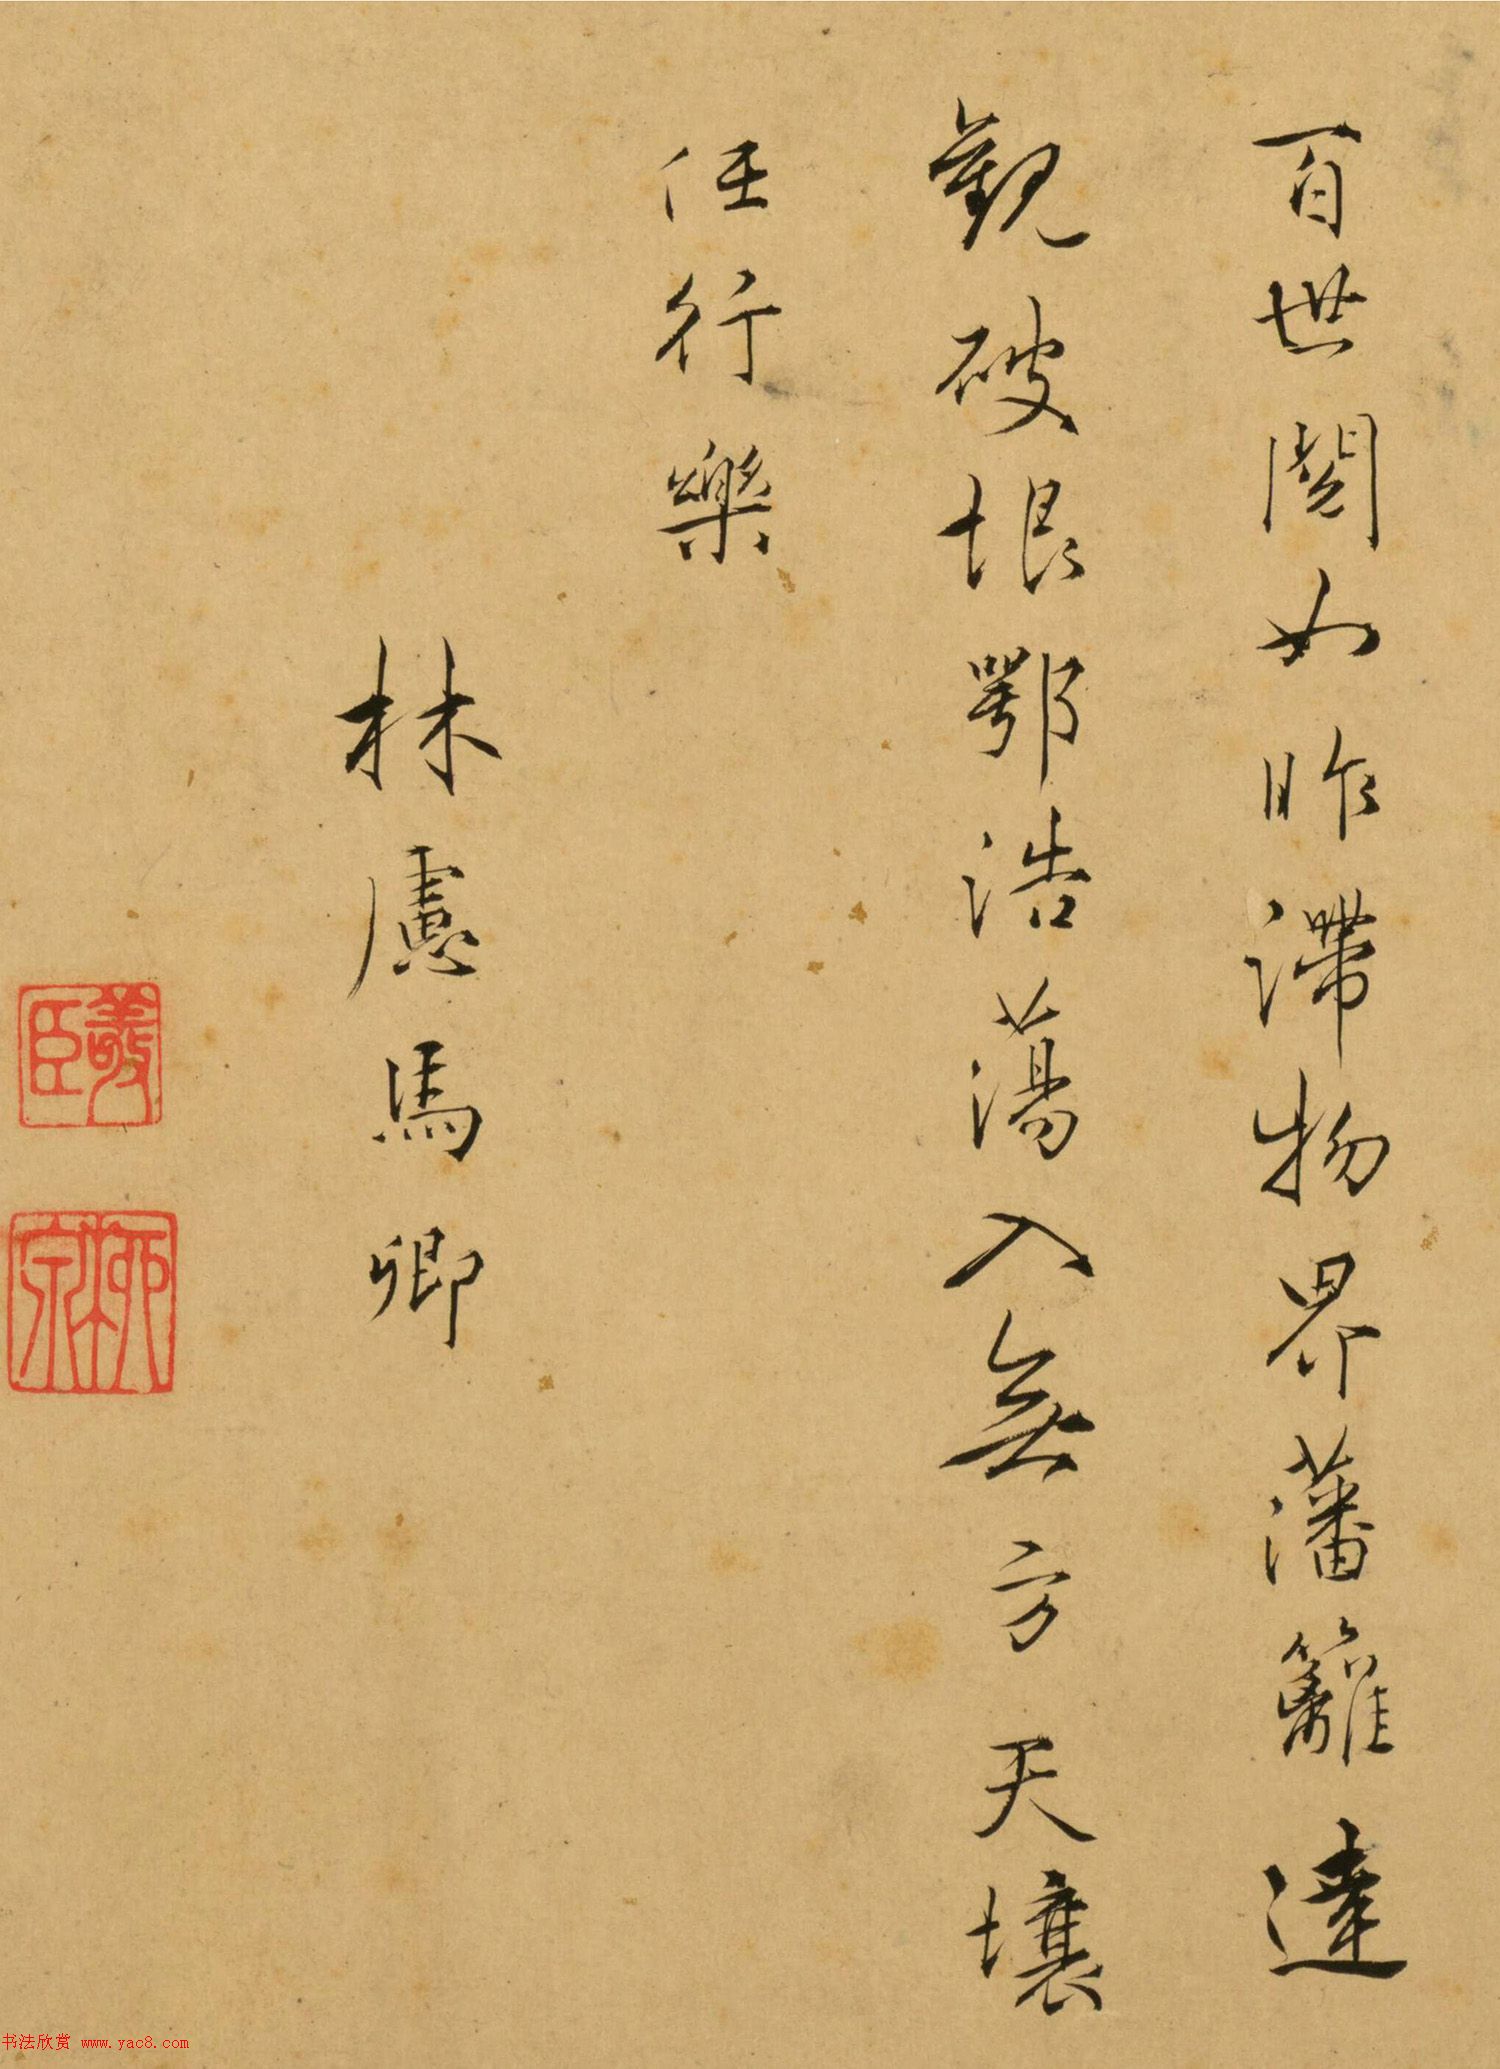 百世闊如昨滯物界藩籬達
觀破垠鄂浩蕩入無方天壤
任行樂
林慮馬卿
羲臣
柳泉
书法欣赏 www.yac8.com